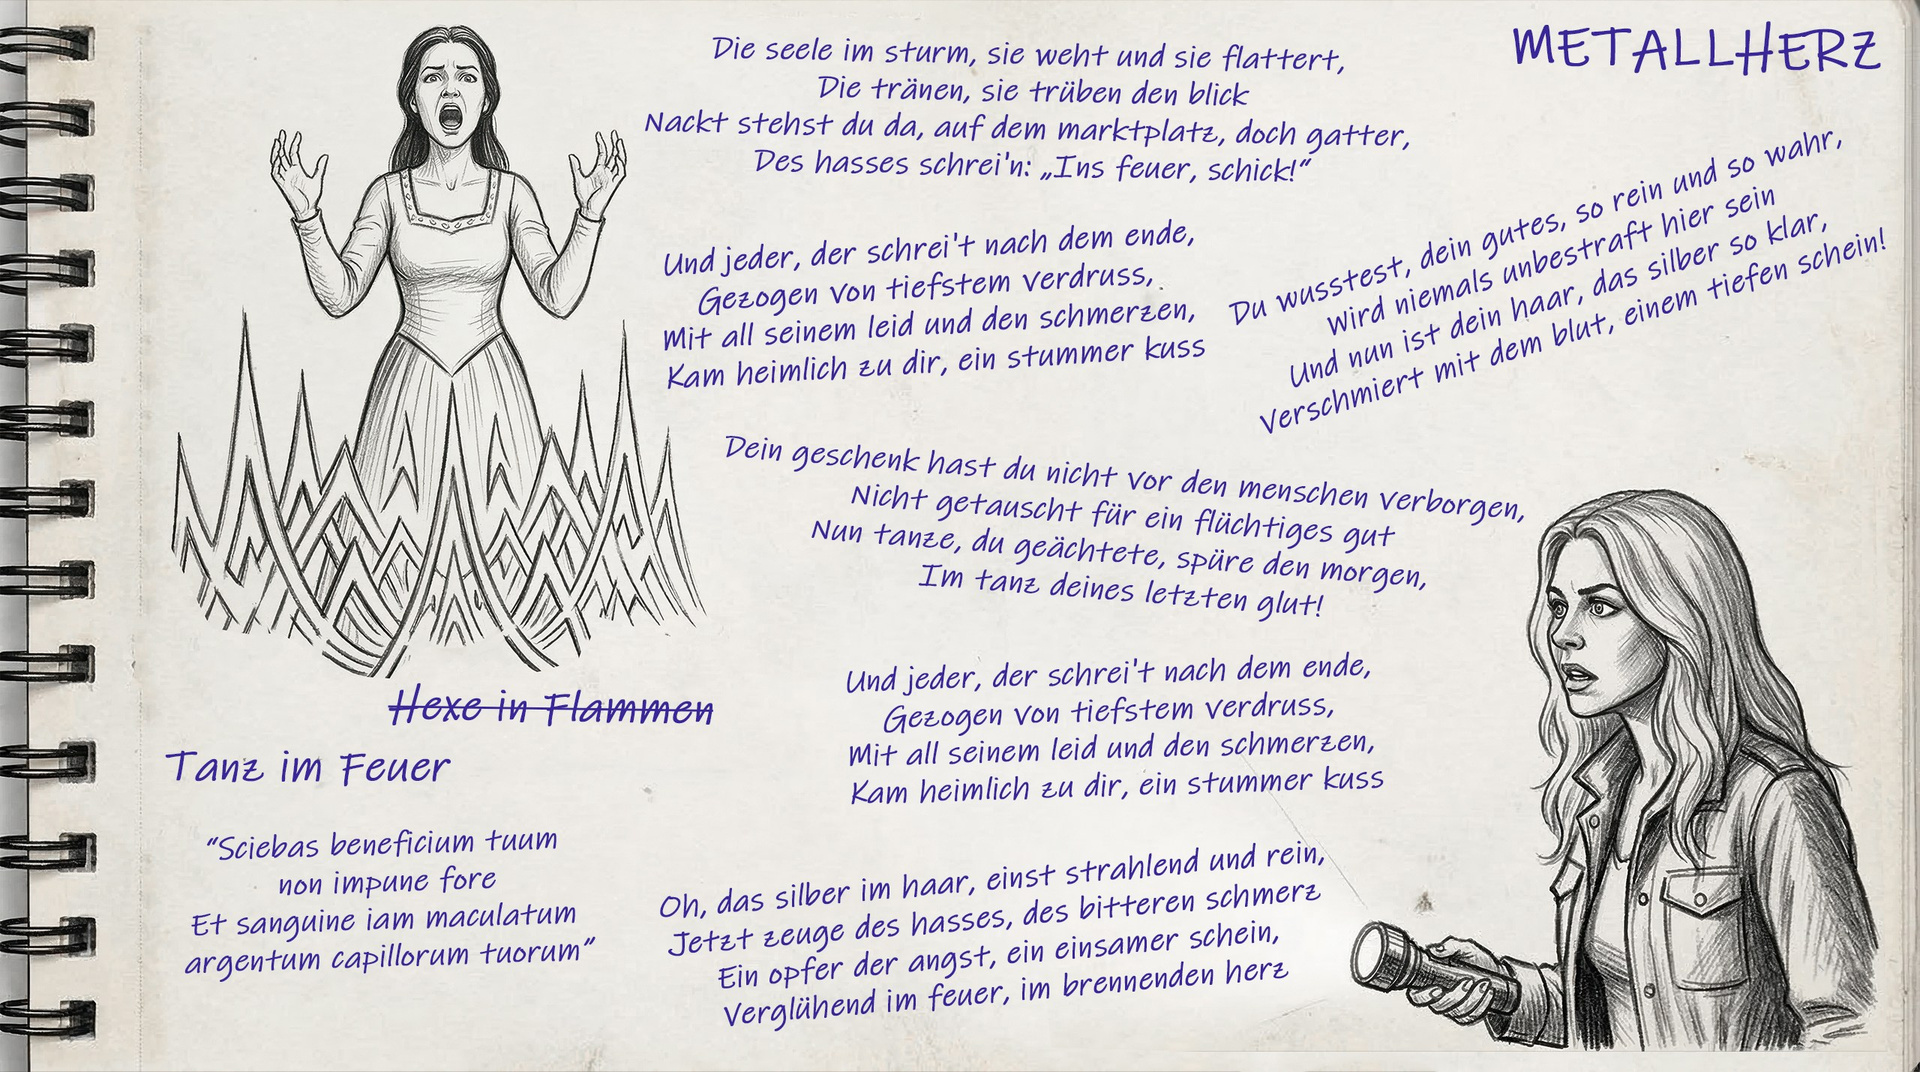 METALLHERZ
Die seele im sturm, sie weht und sie flattert,
Die tränen, sie trüben den blick
Nackt stehst du da, auf dem marktplatz, doch gatter,
Des hasses schrei'n: „Ins feuer, schick!"
Und jeder, der schrei't nach dem ende,
Gezogen von tiefstem verdruss,
Mit all seinem leid und den schmerzen,
Kam heimlich zu dir, ein stummer kuss
Du wusstest, dein gutes, so rein und so wahr,
Wird niemals unbestraft hier sein
Und nun ist dein haar, das silber so klar,
Verschmiert mit dem blut, einem tiefen schein!
Dein geschenk hast du nicht vor den menschen verborgen,
Nicht getauscht für ein flüchtiges gut
Nun tanze, du geächtete, spüre den morgen,
Im tanz deines letzten glut!
Und jeder, der schrei't nach dem ende,
Gezogen von tiefstem verdruss,
Mit all seinem leid und den schmerzen,
Kam heimlich zu dir, ein stummer kuss
Oh, das silber im haar, einst strahlend und rein,
Jetzt zeuge des hasses, des bitteren schmerz
Ein opfer der angst, ein einsamer schein,
Verglühend im feuer, im brennenden herz
Hexe in Flammen
Tanz im Feuer
"Sciebas beneficium tuum
non impune fore
Et sanguine iam maculatum
argentum capillorum tuorum"